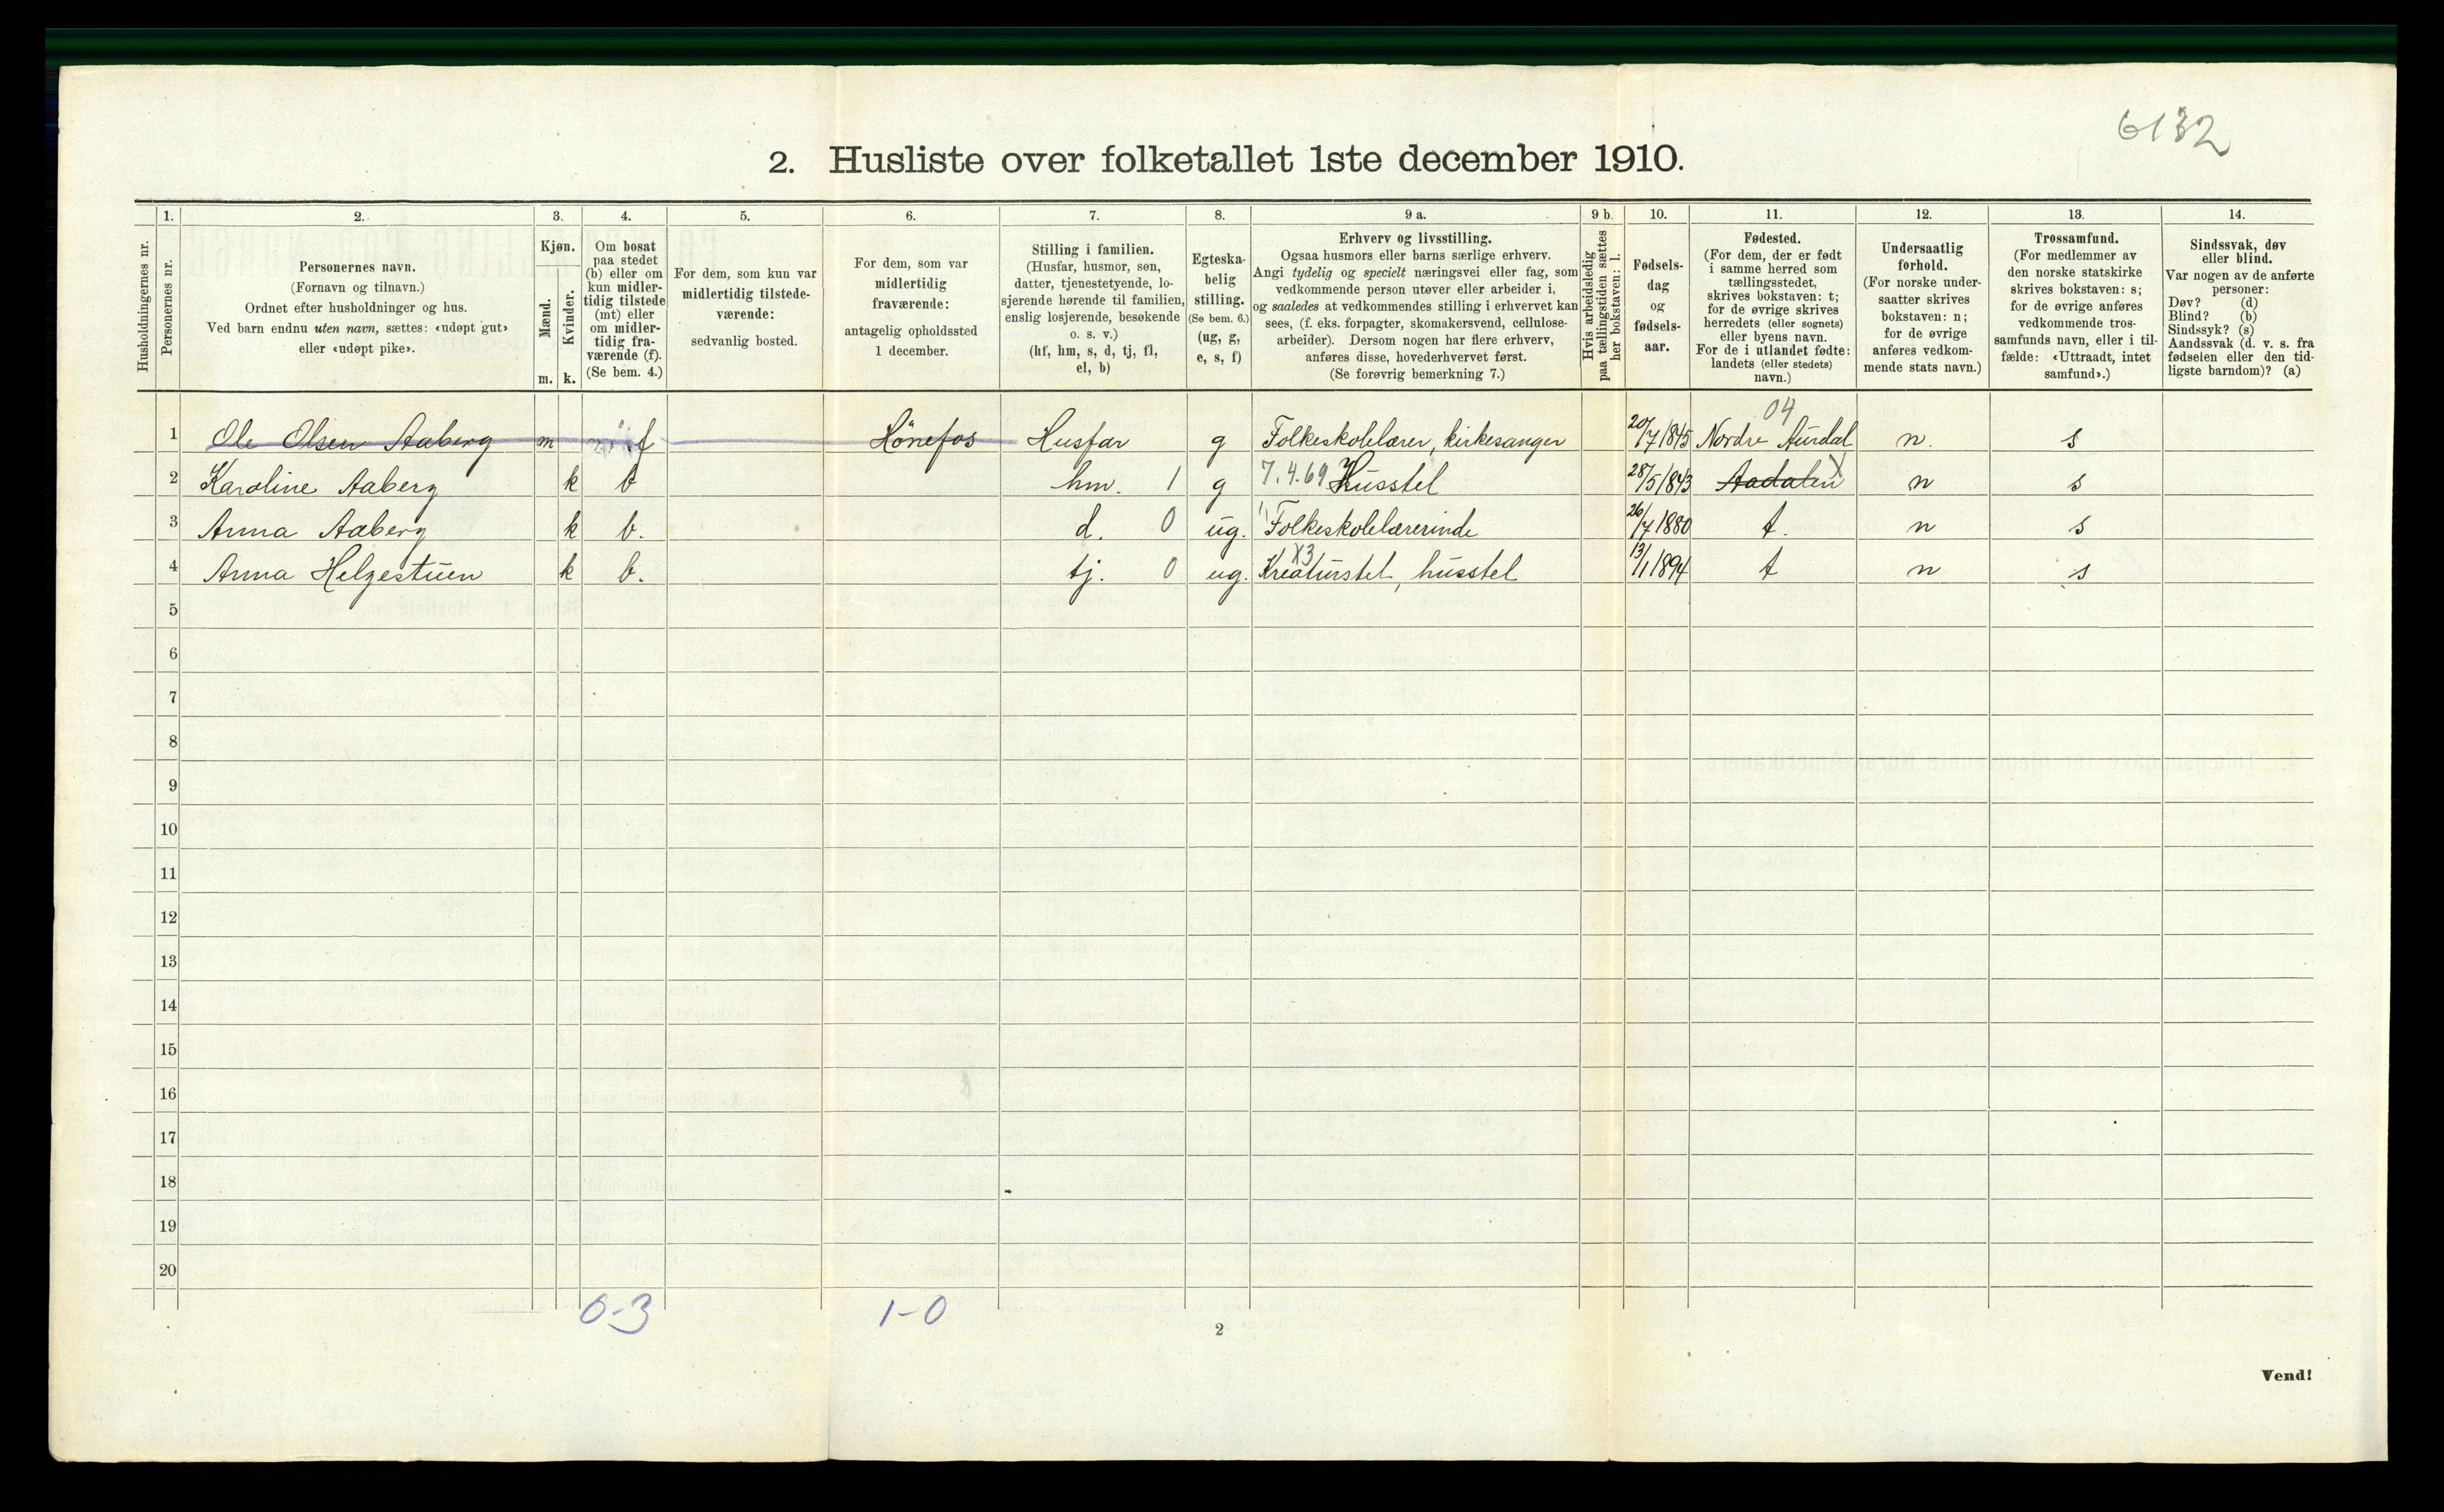 6132
2. Husliste over folketallet 1ste december 1910.
Husholdningernes nr.
1.
Personernes nr.
2.
Personernes navn.
(Fornavn og tilnavn.)
Ordnet efter husholdninger og hus.
Ved barn endnu uten navn, sættes: «udøpt gut»
eller «udøpt pike».
3.
Kjøn.
Mænd.
Kvinder.
m. k.
4.
Om bosat
paa stedet
(b) eller om
kun midler-
tidig tilstede
(mt) eller
om midler-
tidig fra-
værende (f).
(Se bem. 4.)
5.
For dem, som kun var
midlertidig tilstede-
værende:
sedvanlig bosted.
6.
For dem, som var
midlertidig
fraværende:
antagelig opholdssted
1 december.
7.
Stilling i familien.
(Husfar, husmor, søn,
datter, tjenestetyende, lo-
sjerende hørende til familien,
enslig losjerende, besøkende
o. s. v.)
(hf, hm, s, d, tj, fl,
el, b)
8.
Egteska-
belig
stilling.
(Se bem. 6.)
(ug, g,
e, s, f)
9 a.
Erhverv og livsstilling.
Ogsaa husmors eller barns særlige erhverv.
Angi tydelig og specielt næringsvei eller fag, som
vedkommende person utøver eller arbeider i,
og saaledes at vedkommendes stilling i erhvervet kan
sees, (f. eks. forpagter, skomakersvend, cellulose-
arbeider). Dersom nogen har flere erhverv,
anføres disse, hovederhvervet først.
(Se forøvrig bemerkning 7.)
9 b.
Hvis arbeidsledig
paa tællingstiden sættes
her bokstaven: l.
10.
Fødsels-
dag
og
fødsels-
aar.
11.
Fødested.
(For dem, der er født
i samme herred som
tællingsstedet,
skrives bokstaven: t;
for de øvrige skrives
herredets (eller sognets)
eller byens navn.
For de i utlandet fødte:
landets (eller stedets)
navn.)
12.
Undersaatlig
forhold.
(For norske under-
saatter skrives
bokstaven: n;
for de øvrige
anføres vedkom-
mende stats navn.)
13.
Trossamfund.
(For medlemmer av
den norske statskirke
skrives bokstaven: s;
for de øvrige anføres
vedkommende tros-
samfunds navn, eller i til-
fælde: «Uttraadt, intet
samfund».)
14.
Sindssvak, døv
eller blind.
Var nogen av de anførte
personer:
Døv? (d)
Blind? (b)
Sindssyk? (s)
Aandssvak (d. v. s. fra
fødselen eller den tid-
ligste barndom)? (a)
04
1 Ole Olsen Aaberg m f Hönefos Husfar g Folkeskolelærer, kirkesanger 20/7 1845 Nordre Aurdal n. s
2 Karoline Aaberg k b hm. 1 g 7.4.69 Husstel 28/5 1843 Aadalen X n s
3 Anna Aaberg k b. d. 0 ug. Folkeskolelærerinde 26/7 1880 t. n s
X3
4 Anna Helgestuen k b. tj. 0 ug. Kreaturstel, husstel 13/1 1894 t n s
5
6
7
8
9
10
11
12
13
14
15
16
17
18
19
20
0-3 1-0
2
Vend!